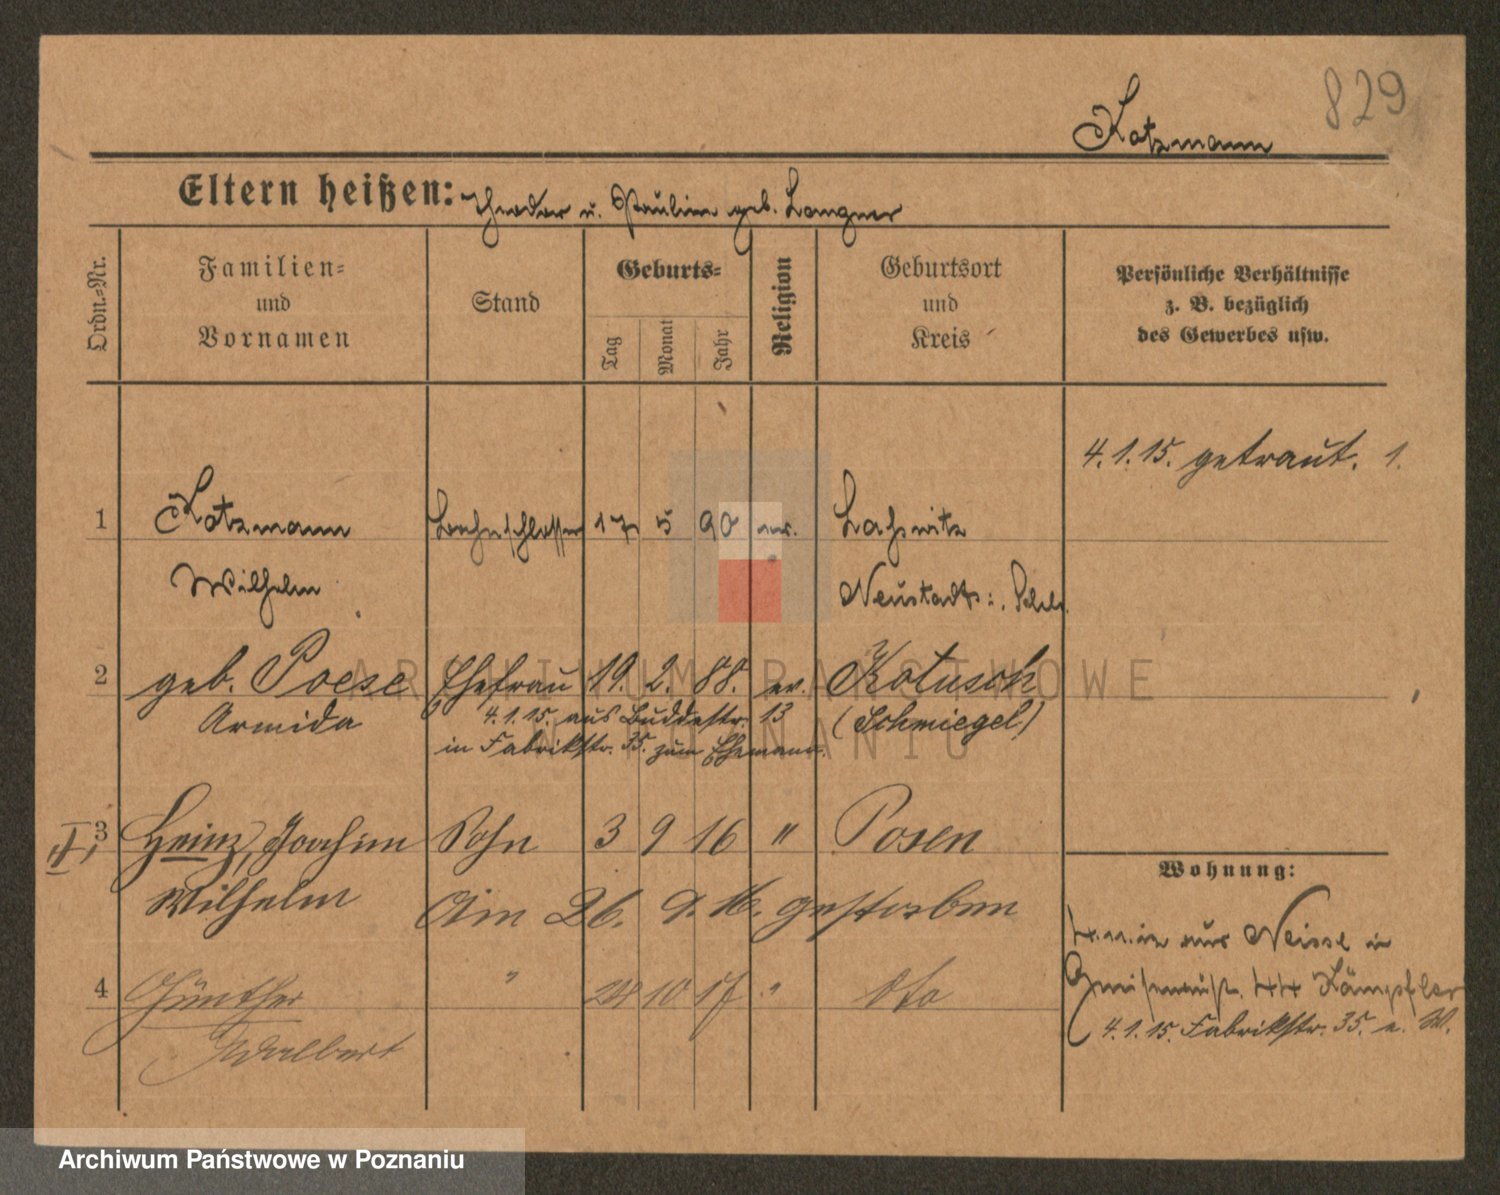 829
Kotzmann
Eltern heißen: Theodor u. Pauline geb. Langner
Ordn.-Nr.
Familien-
und
Vornamen
Stand
Geburts-
Tag
Monat
Jahr
Religion
Geburtsort
und
Kreis
Persönliche Verhältnisse
z. B. bezüglich
des Gewerbes usw.
4.1.15. getraut. 1.
1 Kotzmann 17 5 90 ev.
Wilhelm Neustadt
2 geb. Poese Ehefrau 19. 2. 88. ev. Kotusch
Armida 4.1.15. aus Buddestr. 13 (Schmiegel)
in Fabrikstr. 35. zum Ehemann.
3 Heinz, Joachim Sohn 3 9 16 " Posen
Wilhelm Am 26. 9. 16. gestorben
4 Günther " 24 10 17 " dto
Adalbert
Wohnung:
aus Neisse in
4.1.15. Fabrikstr. 35. e. W.
ARCHIWUM PAŃSTWOWE
W POZNANIU
Archiwum Państwowe w Poznaniu